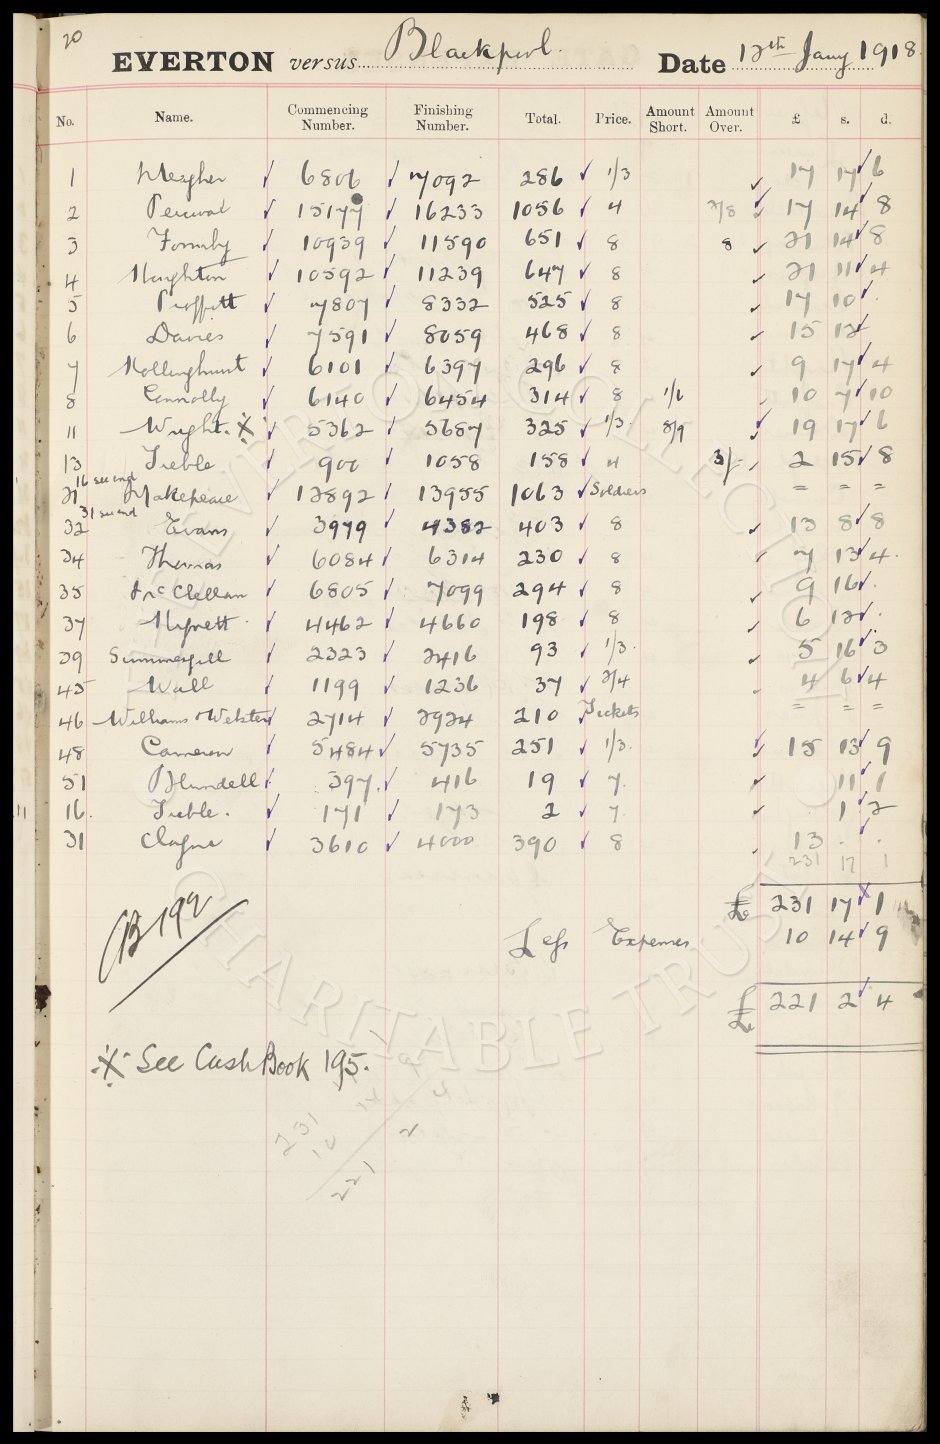 20
EVERTON versus Blackpool. Date 12th Jany 1918.
No. Name. Commencing Number. Finishing Number. Total. Price. Amount Short. Amount Over. £ s. d.
1 Meagher 6806 7092 286 1/3 17 17 6
2 Percival 15177 16233 1056 4 2/8 17 14 8
3 Formby 10939 11590 651 8 8 21 14 8
4 Houghton 10592 11239 647 8 21 11 4
5 Proffitt 7807 8332 525 8 17 10 .
6 Davies 7591 8059 468 8 15 12
7 Hollinghurst 6101 6397 296 8 9 17 4
8 Connolly 6140 6454 314 8 1/6 10 7 10
11 Wright. ※ 5362 5687 325 1/3. 8/9 19 17 6
13 Treble 900 1058 158 4 3/= 2 15 8
16 second
21 Makepeace 12892 13955 1063 Soldiers = = =
31 second
32 Evans 3979 4382 403 8 13 8 8
34 Thomas 6084 6314 230 8 7 13 4.
35 McClellan 6805 7099 294 8 9 16 .
37 Hignett 4462 4660 198 8 6 12 .
39 Summersgill 2323 2416 93 1/3. 5 16 3
45 Wall 1199 1236 37 2/4 4 6 4
46 Williams & Webster 2714 2924 210 Tickets = = =
48 Cameron 5484 5735 251 1/3. 15 13 9
51 Blundell 397. 416 19 7. 11 1
16. Treble. 171 173 2 7. 1 2
31 Clague 3610 4000 390 8 13 . .
231 17 1
£ 231 17 1
B 192
Less Expenses 10 14 9
£ 221 2 4
※ See Cash Book 195.
231 17 1
10 14 9
221 2 4
THE EVERTON COLLECTION
CHARITABLE TRUST